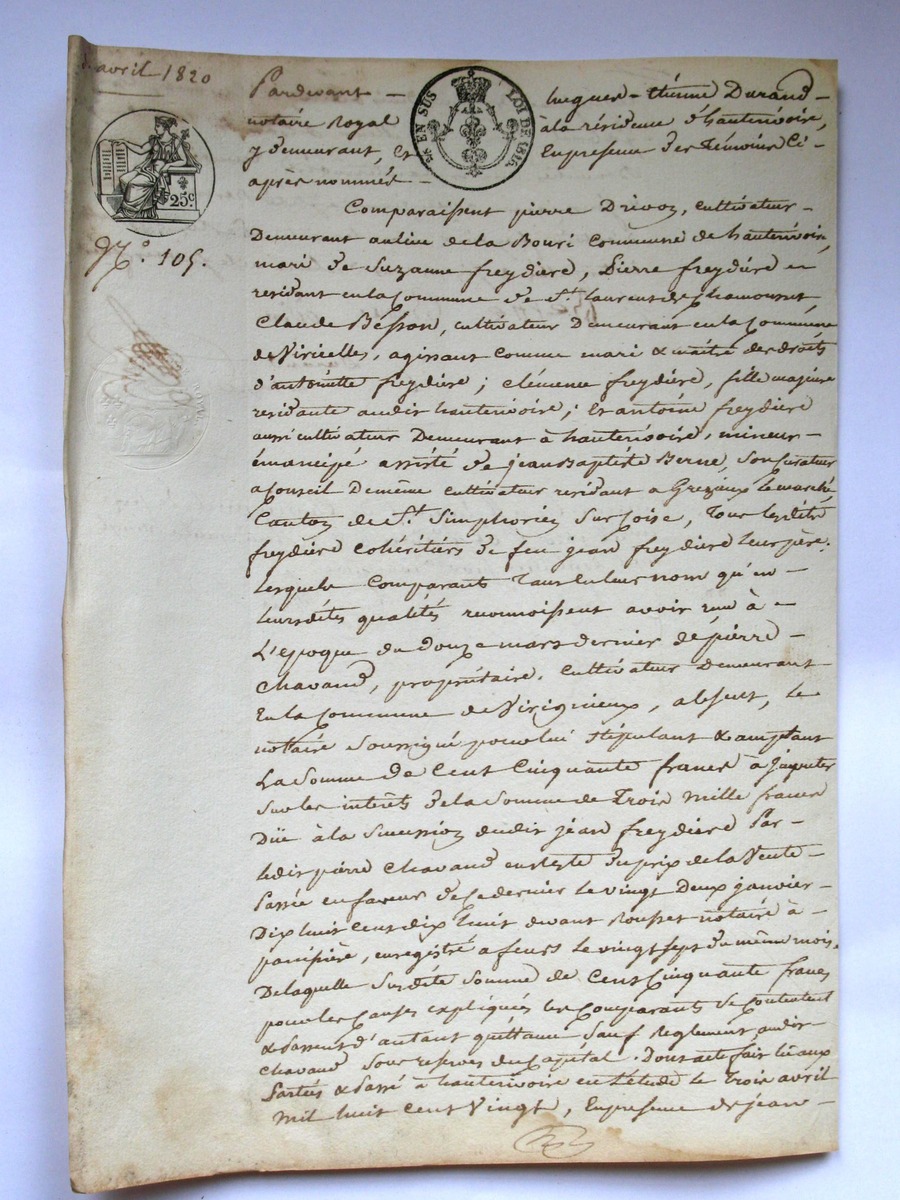 avril 1820
Pardevant - hugues - étienne Durand -
notaire Royal à la résidence d'hauterivoire,
y demeurant, Et En presence des témoins Ci -
après nommés -
EN SUS LOI DE 1816
25c
N.o 105.
Comparaissent pierre Drivoz, cultivateur
Demeurant au lieu de la Bouri Commune de hauterivoire,
mari de Suzanne freydiere, Pierre freydiére en
residant en la Commune de St. Laurent de Chamousset,
Claude Bésson, cultivateur Demeurant en la Commune
de Viricelles, agissant comme mari & maître des droits
d'antoinette freydiere ; Clémence freydiere, fille majeure
residante audit hauterivoire ; Et antoine freydiere
aussi cultivateur Demeurant à hauterivoire, mineur -
émancipé assisté de jean Baptiste Berne, Son Curateur
a Conseil De même cultivateur residant a Grézieux le marché
Canton de St. Simphorien Sur Coise, Tous lesdits
freydiere cohéritiers de feu jean freydiere leur père.
Lesquels Comparants Tous en leurs nom qu'en -
leursdites qualités reconnoissent avoir reçu à -
L'époque du Douze mars dernier de pierre -
Chavand, propriétaire, cultivateur demeurant
En la Commune de Virigneux, absent, le
notaire Soussigné pour lui stipulant & acceptant
La Somme de Cent Cinquante francs à Imputer
Sur les intérêts de la Somme de Trois mille francs
Düe à la Succession dudit jean freydiere Par -
ledit pierre Chavand en reste du prix de la Vente -
Passée en faveur de Ce dernier le vingt Deux janvier -
Dix huit Cent dix huit devant Rousset notaire à -
panissière, enregistré a feurs le vingt sept du même mois.
De laquelle Susdite Somme de Cent Cinquante francs
pour les Causes expliquées les Comparants Se Contentent
& Passent d'autant quittance Sauf Réglement audit
Chavand Sous reserves du Capital. Dont acte fait lu aux
Parties & Passé à hauterivoire en l'étude le Trois avril
mil huit Cent Vingt, En presence de jean -